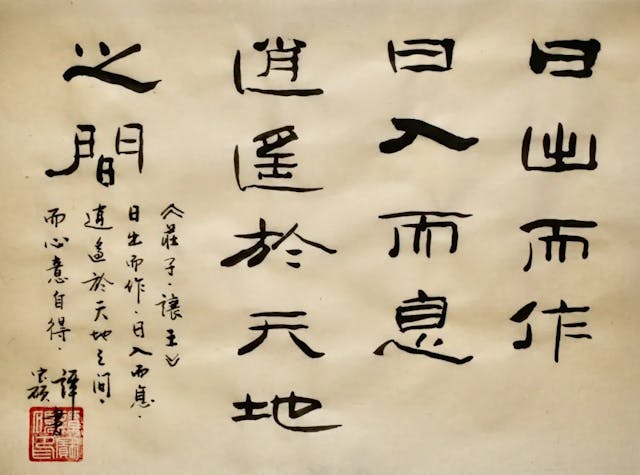 日出而作
日入而息
逍遙於天地
之間
《莊子·讓王》
日出而作·日入而息·
逍遙於天地之間·
而心意自得·
譚
書